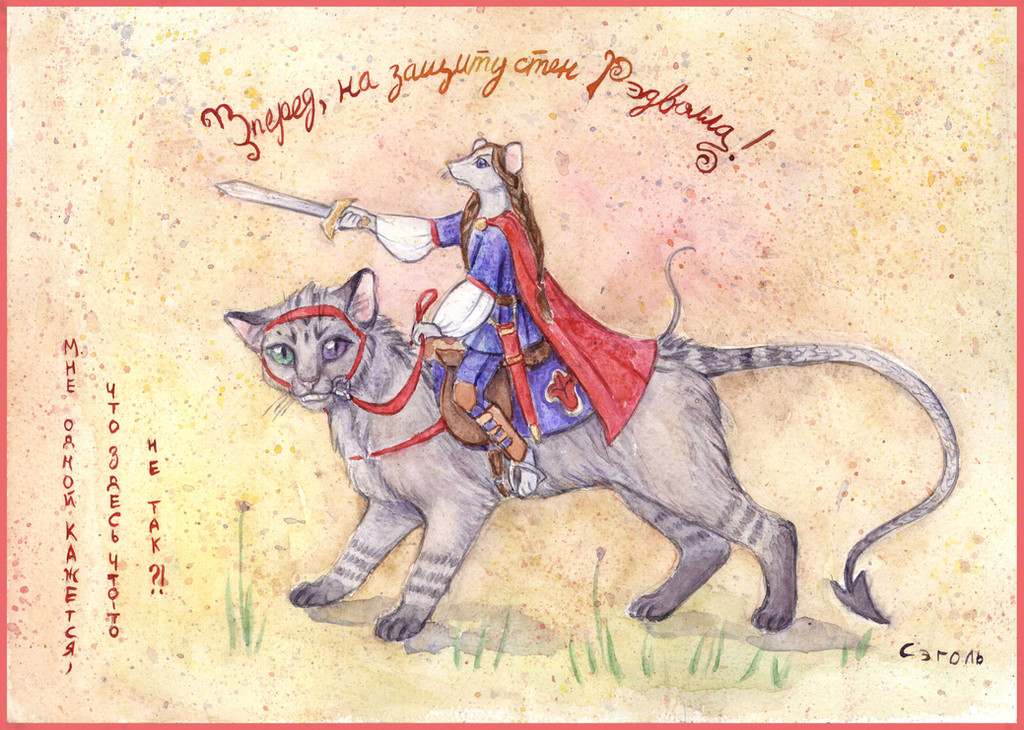 Вперед, на защиту стен Рэдволла!
МНЕ ОДНОЙ КАЖЕТСЯ,
ЧТО ЗДЕСЬ ЧТО-ТО
НЕ ТАК?!
Сэголь